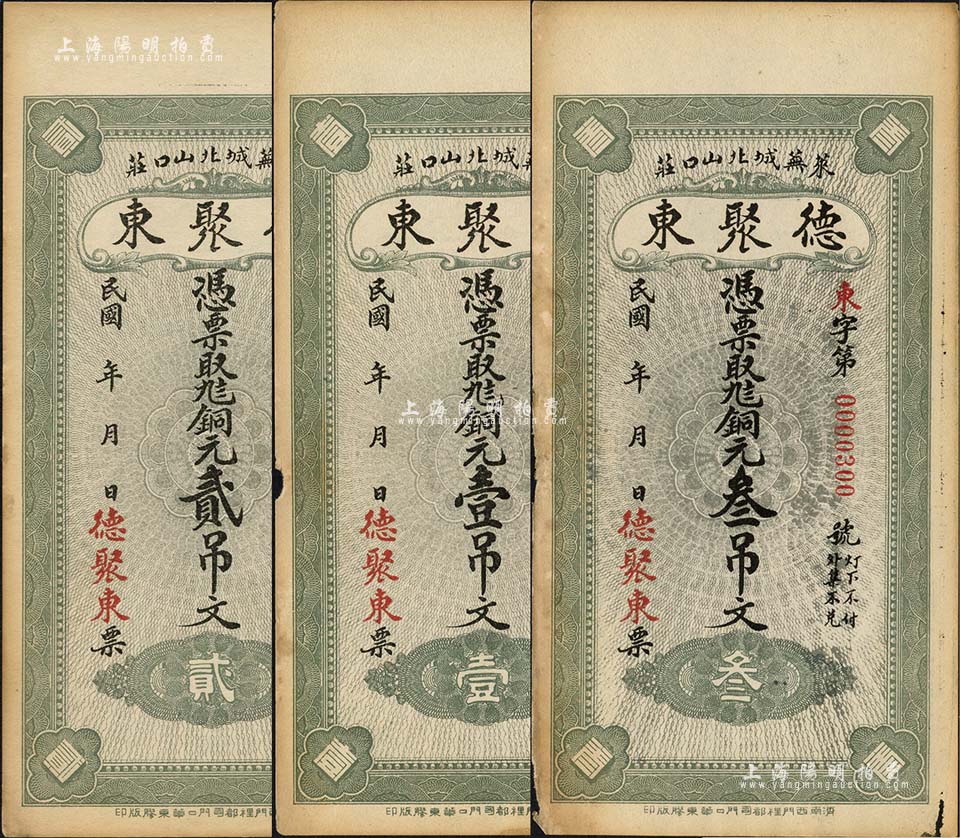 上海陽明拍賣
www.yangmingauction.com
城北山口莊
聚東
憑票取銅元貳吊文
民國 年 月 日德聚東票
貳
門裡都司門口華東膠版印
城北山口莊
聚東
憑票取銅元壹吊文
民國 年 月 日德聚東票
壹
門裡都司門口華東膠版印
上海陽明拍賣
www.yangmingauction.com
萊蕪城北山口莊
德聚東
東字第0000300號
灯下不付
外票不兑
憑票取銅元叁吊文
民國 年 月 日德聚東票
叁
濟南西門裡都司門口華東膠版印
上海陽明拍賣
www.yangmingauction.com